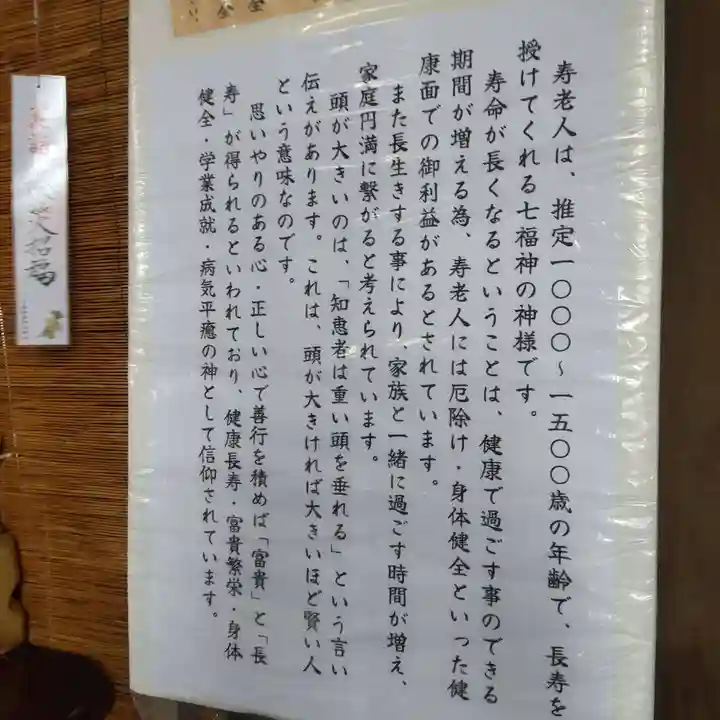 寿老人は、推定一〇〇〇～一五〇〇歳の年齢で、長寿を
授けてくれる七福神の神様です。
寿命が長くなるということは、健康で過ごす事のできる
期間が増える為、寿老人には厄除け・身体健全といった健
康面での御利益があるとされています。
また長生きする事により、家族と一緒に過ごす時間が増え、
家庭円満に繋がると考えられています。
頭が大きいのは、「知恵者は重い頭を垂れる」という言い
伝えがあります。これは、頭が大きければ大きいほど賢い人
という意味なのです。
思いやりのある心・正しい心で善行を積めば「富貴」と「長
寿」が得られるといわれており、健康長寿・富貴繁栄・身体
健全・学業成就・病気平癒の神として信仰されています。
招福